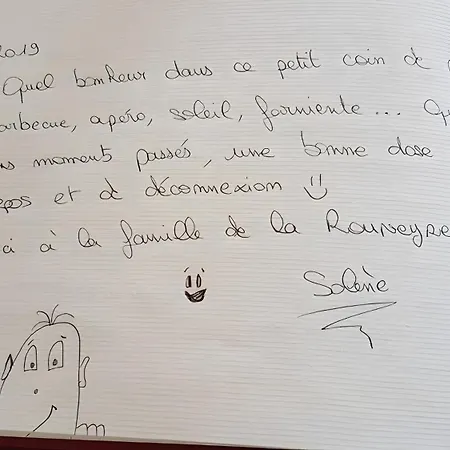 2019
Quel bonheur dans ce petit coin de
arbecue, apéro, soleil, farniente...
moments passés, une bonne dose
epos et de déconnexion
ci à la famille de la Rouveyre
Solène